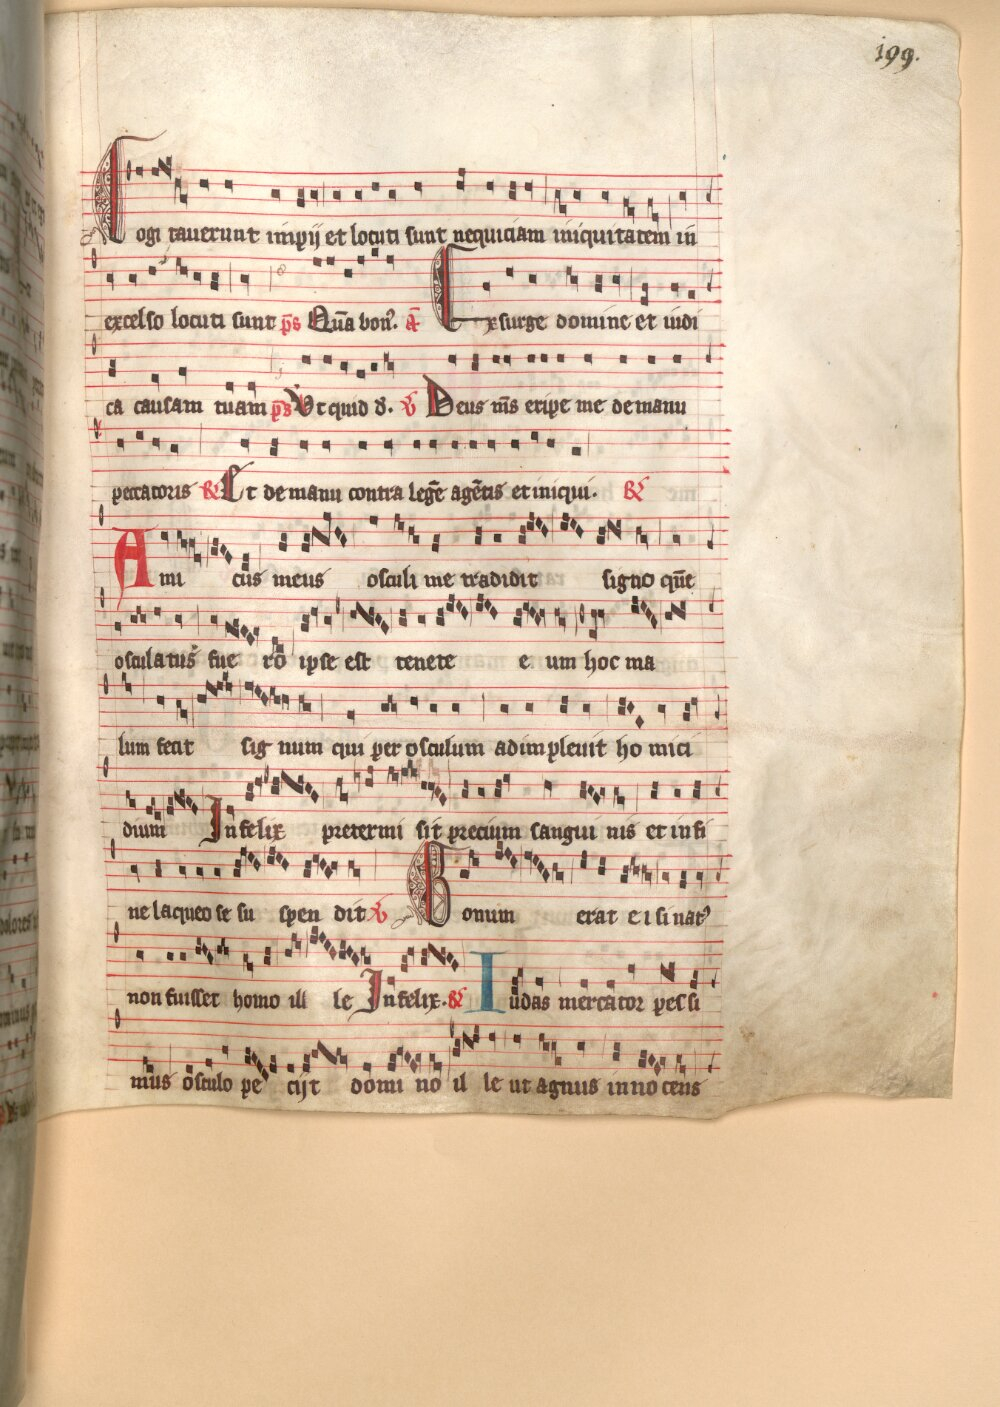 199.
Cogitauerunt impij et locuti sunt nequiciam iniquitatem in
excelso locuti sunt p̄s Quā bonꝰ. a᷃ Exsurge domine et iudi
ca causam tuam p̄s Vt quid d̄. ℣ Deus m̄s eripe me de manu
peccatoris ℟ Et de manu contra legē agētis et iniqui. ℟
Ami cus meus osculi me tradidit signo quē
osculatus fue ro ipse est tenete e um hoc ma
lum fecit sig num qui per osculum adimpleuit ho mici
dium Infelix pretermi sit precium sangui nis et in fi
ne laqueo se su spen dit ℣ Bonum erat e i si natꝰ
non fuisset homo ill le Infelix. ℟ Iudas mercator pessi
mus osculo pe cijt domi no il le ut agnus innocens